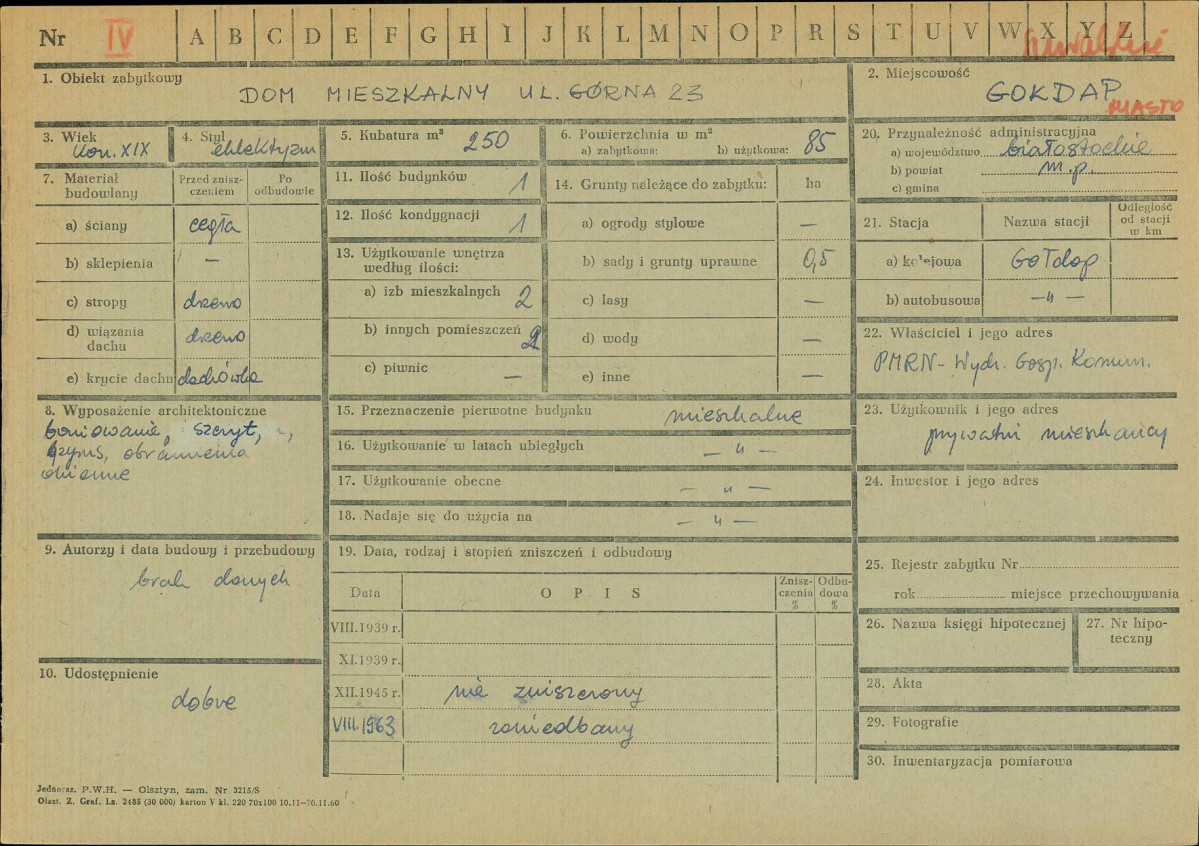 Nr IV A B C D E F G H I J K L M N O P R S T U V W X Y Z
Suwalskie
1. Obiekt zabytkowy
DOM MIESZKALNY UL. GÓRNA 23
2. Miejscowość
GOŁDAP
MIASTO
3. Wiek
kon. XIX
4. Styl
eklektyzm
5. Kubatura m³ 250
6. Powierzchnia w m²
a) zabytkowa: b) użytkowa: 85
20. Przynależność administracyjna
a) województwo białostockie
b) powiat m.p.
c) gmina
7. Materiał budowlany
Przed zniszczeniem
Po odbudowie
a) ściany cegła
b) sklepienia —
c) stropy drzewo
d) wiązania dachu drzewo
e) krycie dachu dachówka
11. Ilość budynków 1
12. Ilość kondygnacji 1
13. Użytkowanie wnętrza
według ilości:
a) izb mieszkalnych 2
b) innych pomieszczeń 2
c) piwnic —
14. Grunty należące do zabytku: ha
a) ogrody stylowe —
b) sady i grunty uprawne 0,5
c) lasy —
d) wody —
e) inne —
21. Stacja Nazwa stacji
Odległość
od stacji
w km
a) kolejowa Gołdap
b) autobusowa —„—
22. Właściciel i jego adres
PMRN - Wydz. Gosp. Komun.
8. Wyposażenie architektoniczne
boniowanie, szczyt,
gzyms, obramienia
okienne
15. Przeznaczenie pierwotne budynku mieszkalne
16. Użytkowanie w latach ubiegłych —„—
17. Użytkowanie obecne —„—
18. Nadaje się do użycia na —„—
23. Użytkownik i jego adres
prywatni mieszkańcy
24. Inwestor i jego adres
9. Autorzy i data budowy i przebudowy
brak danych
10. Udostępnienie
dobre
19. Data, rodzaj i stopień zniszczeń i odbudowy
Data OPIS
Zniszczenia %
Odbudowa %
VIII.1939 r.
XI.1939 r.
XII.1945 r. nie zniszczony
VIII.1963 zaniedbany
25. Rejestr zabytku Nr
rok miejsce przechowywania
26. Nazwa księgi hipotecznej
27. Nr hipoteczny
28. Akta
29. Fotografie
30. Inwentaryzacja pomiarowa
Jednoraz. P.W.H. — Olsztyn, zam. Nr 3215/S
Olszt. Z. Graf. Lz. 2485 (30 000) karton V kl. 220 70x100 10.11—30.11.60